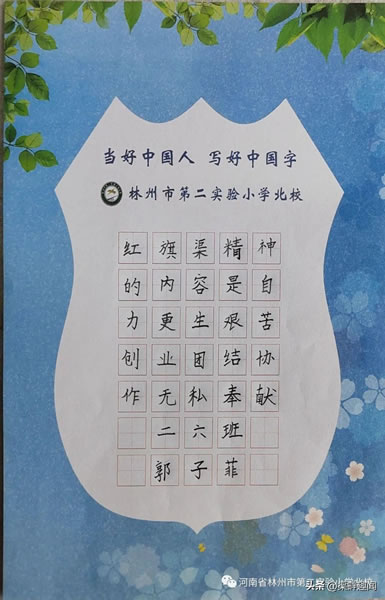 当好中国人 写好中国字
林州市第二实验小学北校
红旗渠精神
的内容是自
力更生艰苦
创业团结协
作无私奉献
二六班
郭子菲
河南省林州市第二实验小学北校